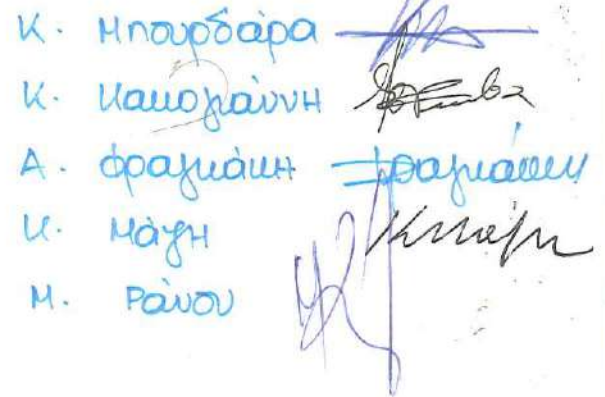 Κ. Μπουρδάρα
Κ. Κακογιάννη
Α. Φραγκάκη Φραγκάκη
Κ. Μάγη ΚΜάγη
Μ. Ράνου